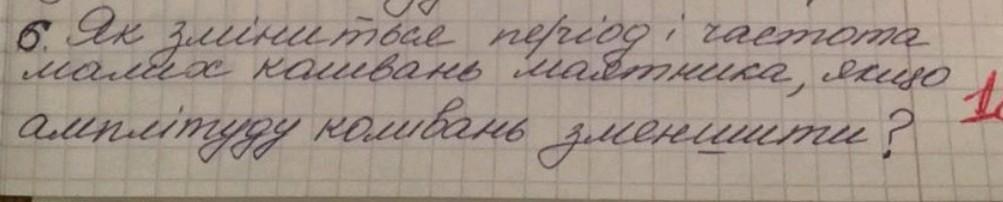 6. Як зміниться період і частота
малих коливань маятника, якщо
амплітуду коливань зменшити?